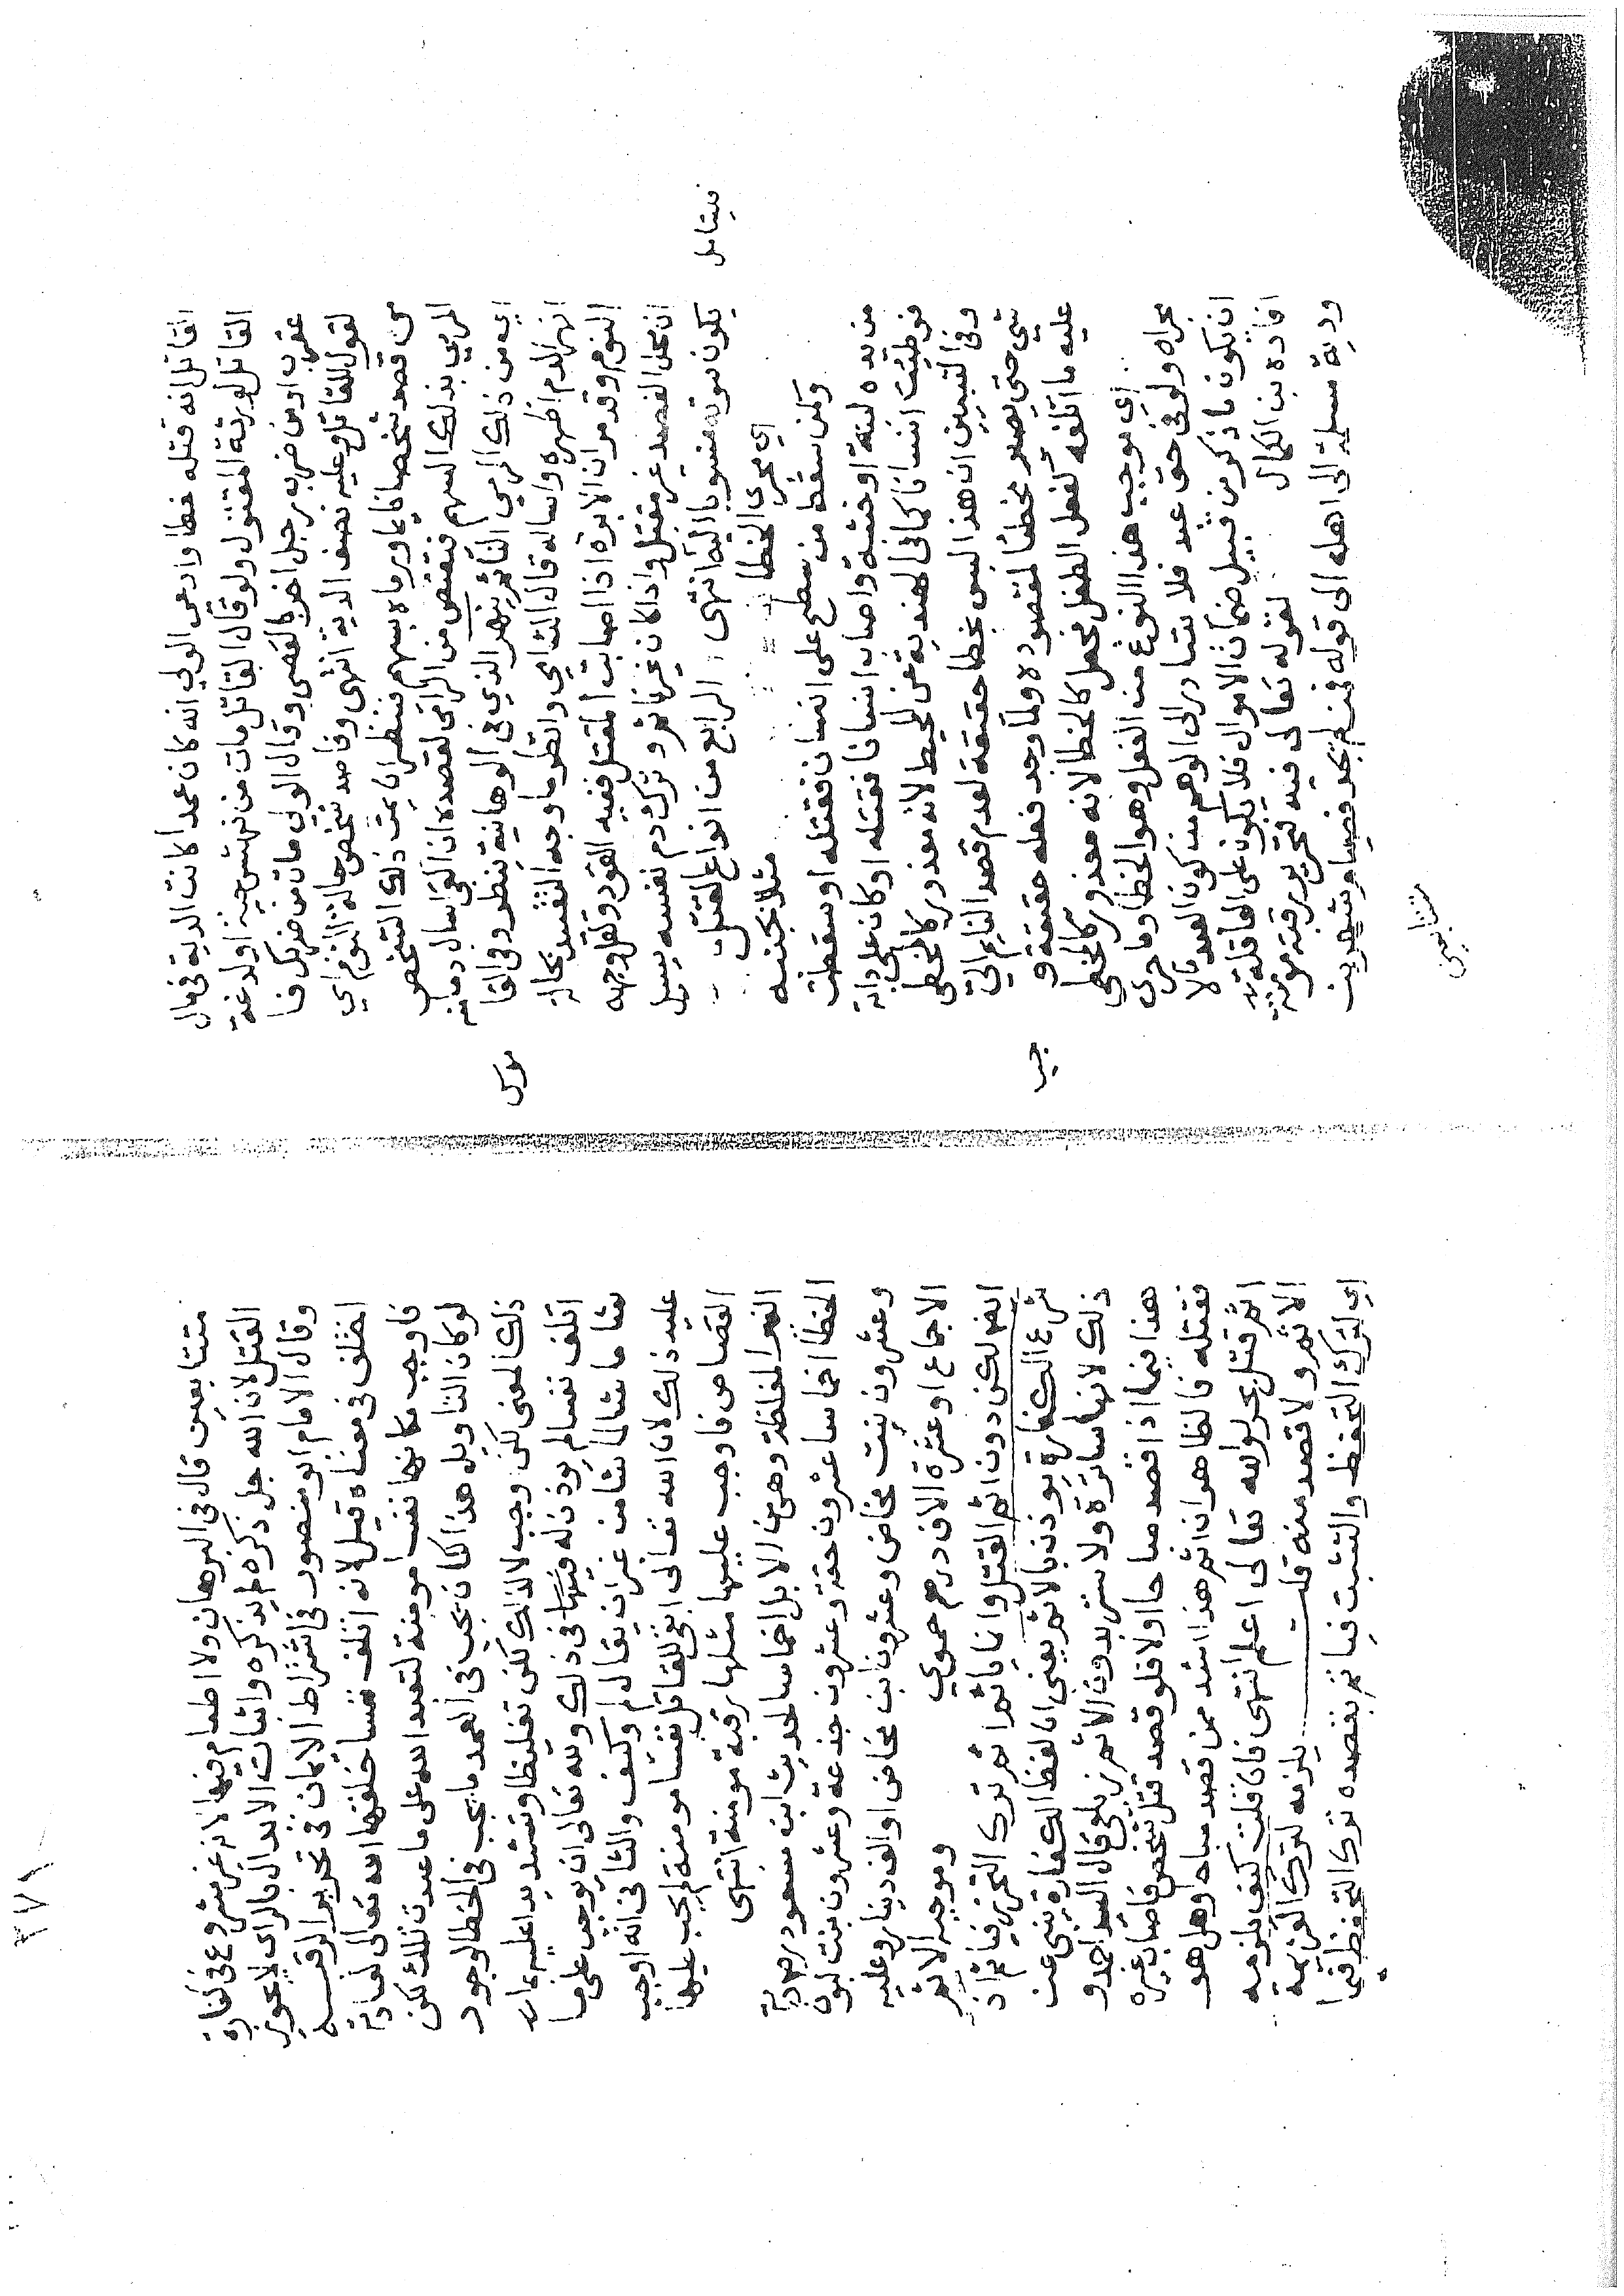 القاتل انه قتله خطا وادعى الولي انه كان عمدا كانت الدية في مال
القاتل لورثة المقتول ولو قال القاتل مات من نهش حية او لدغة
عقرب او من ضربه رجل اخر بالعصى وقال الولي مات من ضربك فا
لقول للقاتل وعليه نصف الدية انتهى وقاصد شخص حالة النوم اي
من قصد شخصا نايما ورماه بسهم فينظر ان يمت ذلك الشخص
المرمي بذلك السهم فيقتص من الرامي لقصده ان القى اسال دما منه
اي من ذلك الرمي ينهر الذي في الوهبانية ينظر وفي القا
موس
انهر الدم اظهره واساله قال الشامي وانظر ما وجه التقييد بحالة
النوم وقد مر ان الابرة اذا اصابت المقتل ففيه القود ولعل وجهه
ان محل الفصد غير مقتل واذا كان غير نائم وترك دم نفسه يسيل
يكون موته منسوبا اليه انتهى الرابع من انواع القتل
فيتامل
اي مجرى الخطا مثلا بجنبه
وكمن سقط من سطح على انسان فقتله او سقطت
من يده لبنة او خشبة واصاب انسانا فقتله او كان على دابة
فوطيت انسانا كما في الهندية عن المحيط لانه معذور كالمخطي
وفي التبيين ان هذا ليس بخطا حقيقة لعدم قصد النايم الى
شي حتى يصير مخطئا لمقصوده ولما وجد فعله حقيقة و
جب
عليه ما اتلفه كفعل الطفل فجعل كالخطا لانه معذور كالمخطي
اي موجب هذا النوع من الفعل وهو الخطا وما جرى
مجراه ولو في حق عبد فلا يتبادر الى الوهم من كون العبد مالا
ان يكون ما ذكر من قبيل ضمان الاموال فلا يكون على العاقلة
افاده بن الكمال لقوله تعالى فيه فتحرير رقبة مؤمنة
ودية مسلمة الى اهله الى قوله فمن لم يجد فصيام شهرين
متتابعين
٣٧١
متتابعين قال في البرهان ولا اطعام فيها لانه غير مشروع في كفارة
القتل لان الله جل ذكره لم يذكره واثبات الابدال بالراي لا يجوز
وقال الامام ابو منصور في اشتراط الايمان في تحرير الرقبة
اختلف في معناه قيل لانه اتلف نفسا خلقها الله تعالى لعبادته
فاوجب مكانها نفسا مومنة لتعبد الله على ما عبدت تلك لكن
لو كان التاويل هذا لكان يجب في العمد ما يجب في الخطا لوجود
ذلك المعنى لكن وجب لا لذلك لكن تغليظا وتشديدا عليه بما
اتلف نفسا لم يوذن له فيها في ذلك ولله تعالى ان يوجب على ما
شا ما شا لما شا من غير ان يقال لم وكيف والثاني انه اوجب
عليه ذلك لان الله تعالى ابقى للقاتل نفسا مومنة لم يجب عليها
القصاص فاوجب عليها مثلها رقبة مومنة انتهى
الغير المغلظة وهي من الابل اخماسا لحديث ابن مسعود رضي
الخطا اخماسا عشرون حقة وعشرون جذعة وعشرون بنت لبون
وعشرون بنت مخاض وعشرون ابن مخاض او الف دينار وعليه
الاجماع او عشرة الاف درهم حموي وموجبه الاثم
ايضا لكن دون اثم القتل وانما ياثم اثم ترك التحرز فيما ثم اذ
شرع الكفارة يوذن بالاثم يعني ان لفظ الكفارة ينبئ عن
ذلك لانها ساترة ولا ستر بدون الاثم زيلعي قال السيد احمد و
هذا فيما اذا قصد مباحا او لا فلو قصد قتل شخص فاصاب غيره
فقتله فالظاهر ان اثم هذا اشد ممن قصد مباحا وهل هو
اثم قتل يحرر والله تعالى اعلم انتهى فان قلت كيف يلزمه
الاثم ولا قصد منه قلت يلزمه لترك العزيمة
اي لترك التحفظ والتثبت فياثم بقصده ترك التحفظ فيما